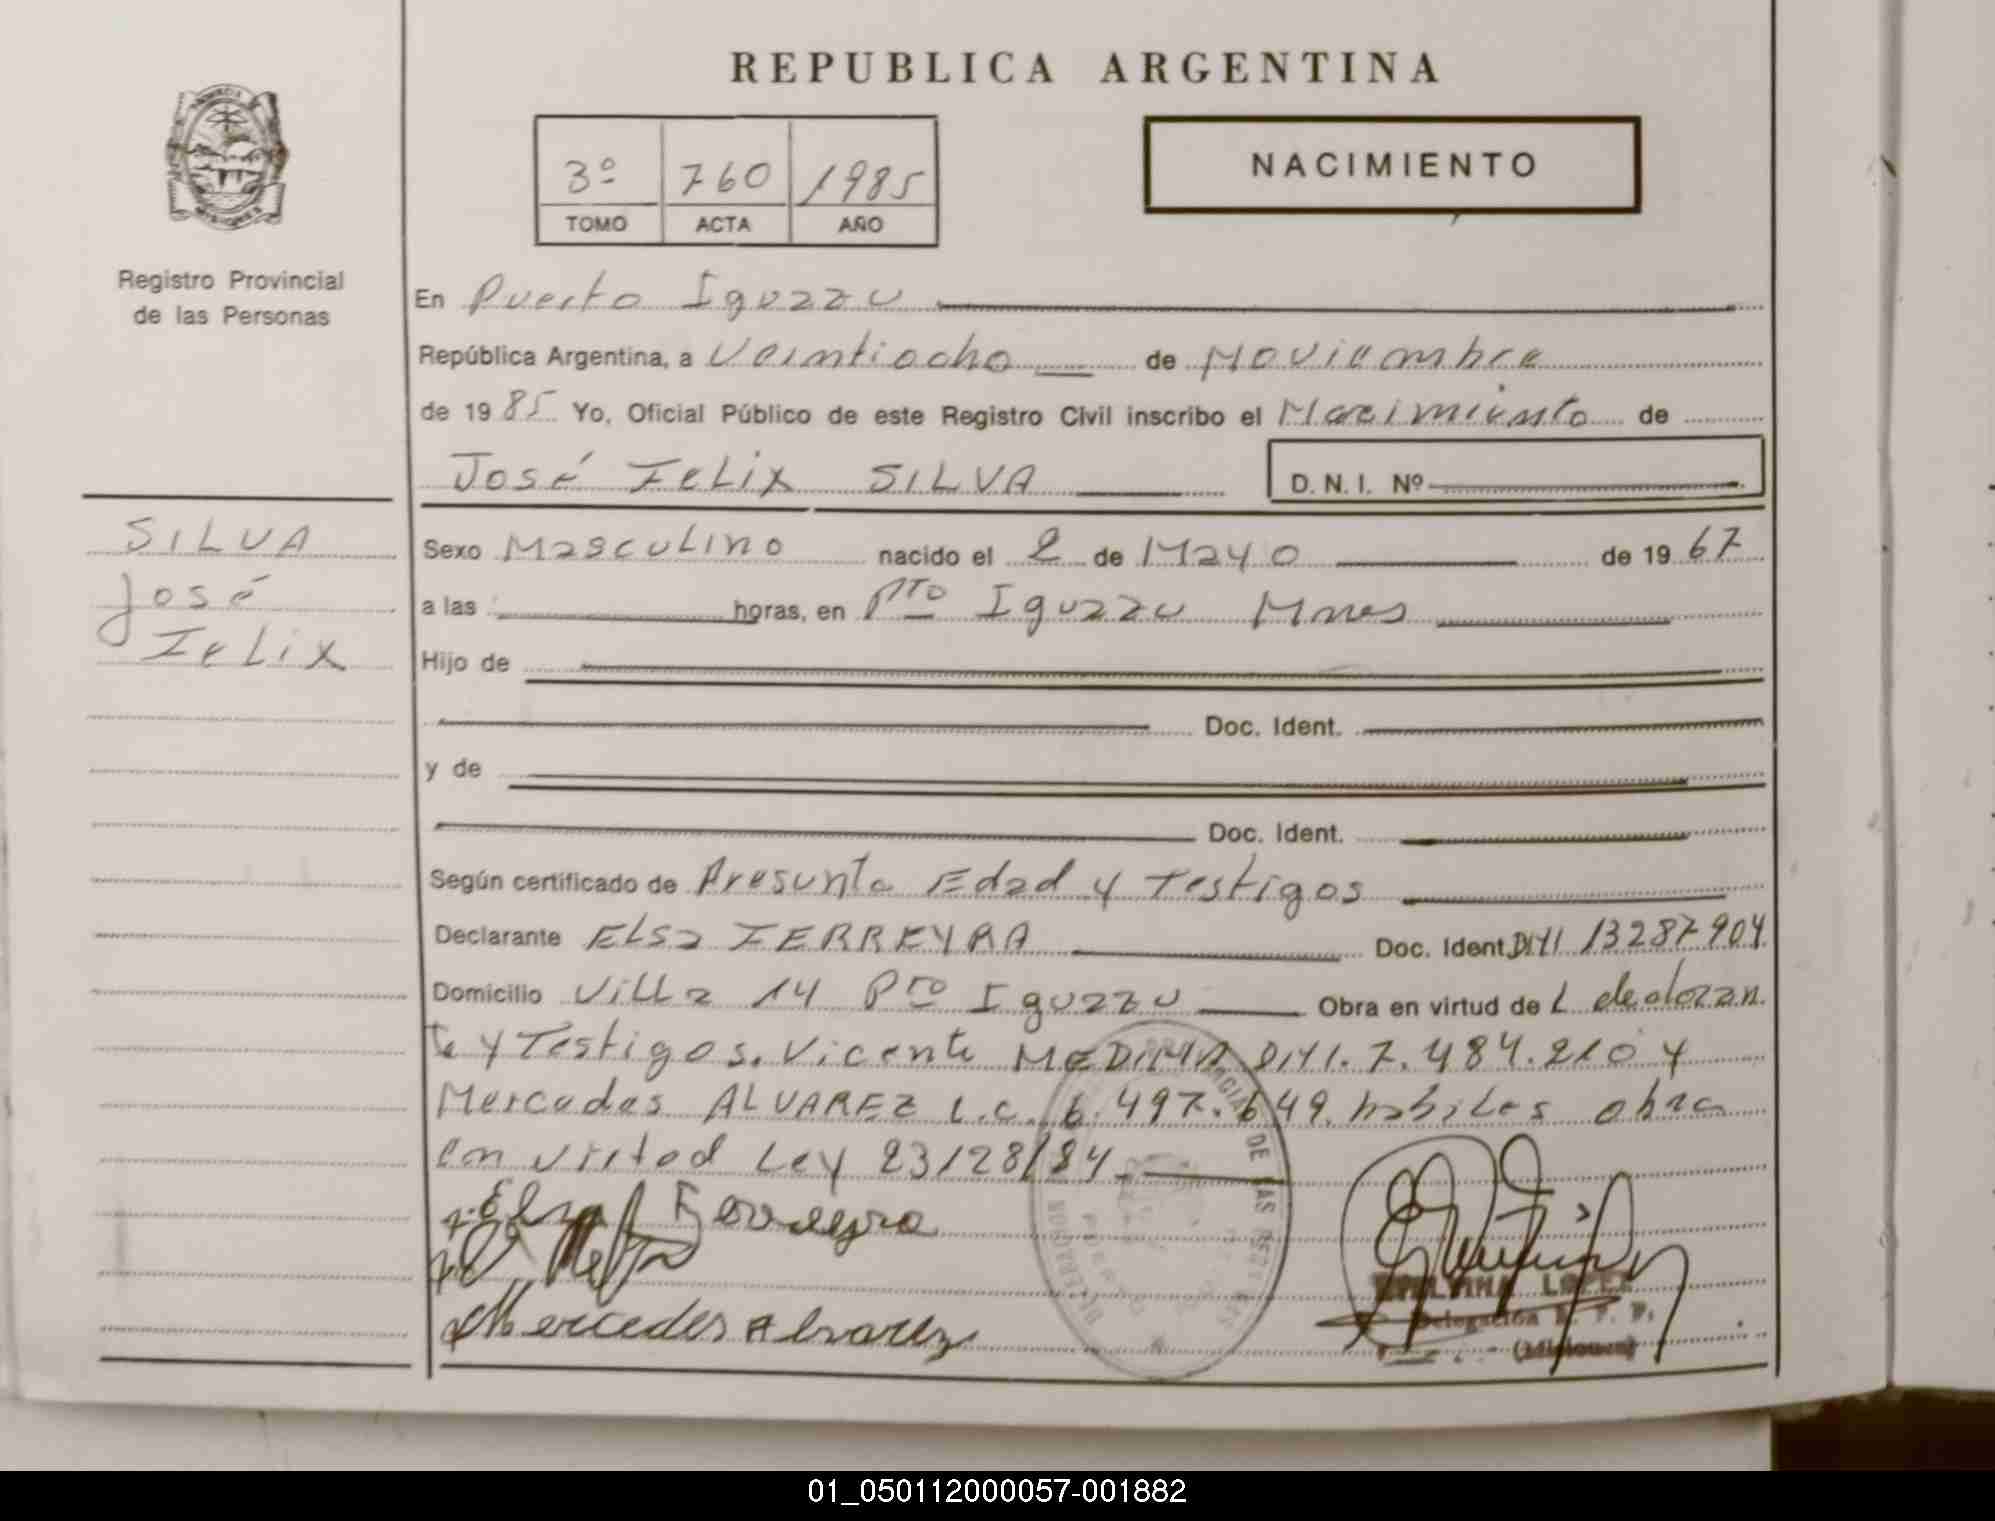 REPUBLICA ARGENTINA
3º 760 1985
TOMO ACTA AÑO
NACIMIENTO
Registro Provincial
de las Personas
En Puerto Iguazu
República Argentina, a Veintiocho de Noviembre
de 1985 Yo, Oficial Público de este Registro Civil inscribo el Nacimiento de
José Felix SILVA D. N. I. Nº
SILVA
José
Felix
Sexo Masculino nacido el 2 de Mayo de 1967
a las horas, en Pto Iguazu Mnes
Hijo de
Doc. Ident.
y de
Doc. Ident.
Según certificado de Presunta Edad y Testigos
Declarante ELSa FERREYRA Doc. Ident. DNI 13287904
Domicilio Villa 14 Pto Iguazu Obra en virtud de L declaran
te y Testigos. Vicente MEDINA DNI. 7.484.210 y
Mercedes ALVAREZ L.C. 6.497.649. habiles obra
en virtud Ley 23128/84
Elsa Ferreyra
Mercedes Alvarez
LOPEZ
Delegación
(Misiones)
01_050112000057-001882